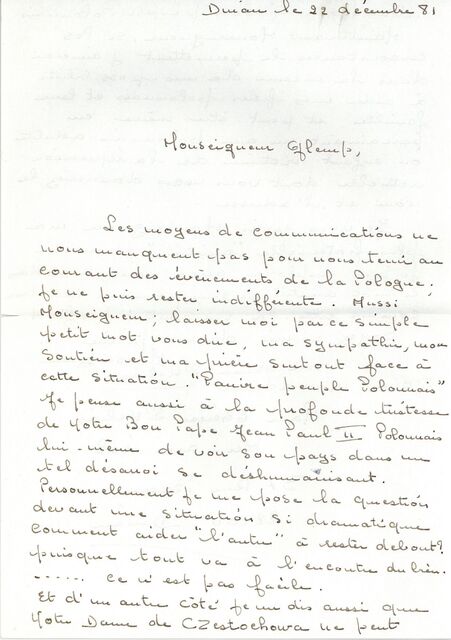 Dinan le 22 décembre 81
Monseigneur Glemp,
Les moyens de communications ne
nous manquent pas pour nous tenir au
courant des évènements de la Pologne.
Je ne puis rester indifférente. Aussi
Monseigneur; laisser moi par ce simple
petit mot vous dire, ma sympathie, mon
soutien et ma prière surtout face à
cette situation. "Pauvre peuple Polonnais"
Je pense aussi à la profonde tristesse
de Notre Bon Pape Jean Paul II Polonnais
lui-même de voir son pays dans un
tel désarroi se déshumanisant.
Personnellement je me pose la question
devant une situation si dramatique
comment aider "l'autre" à rester debout?
puisque tout va à l'encontre du bien.
...... ce n'est pas facile.
Et d'un autre côté je me dis aussi que
Notre Dame de CZestochowa ne peut